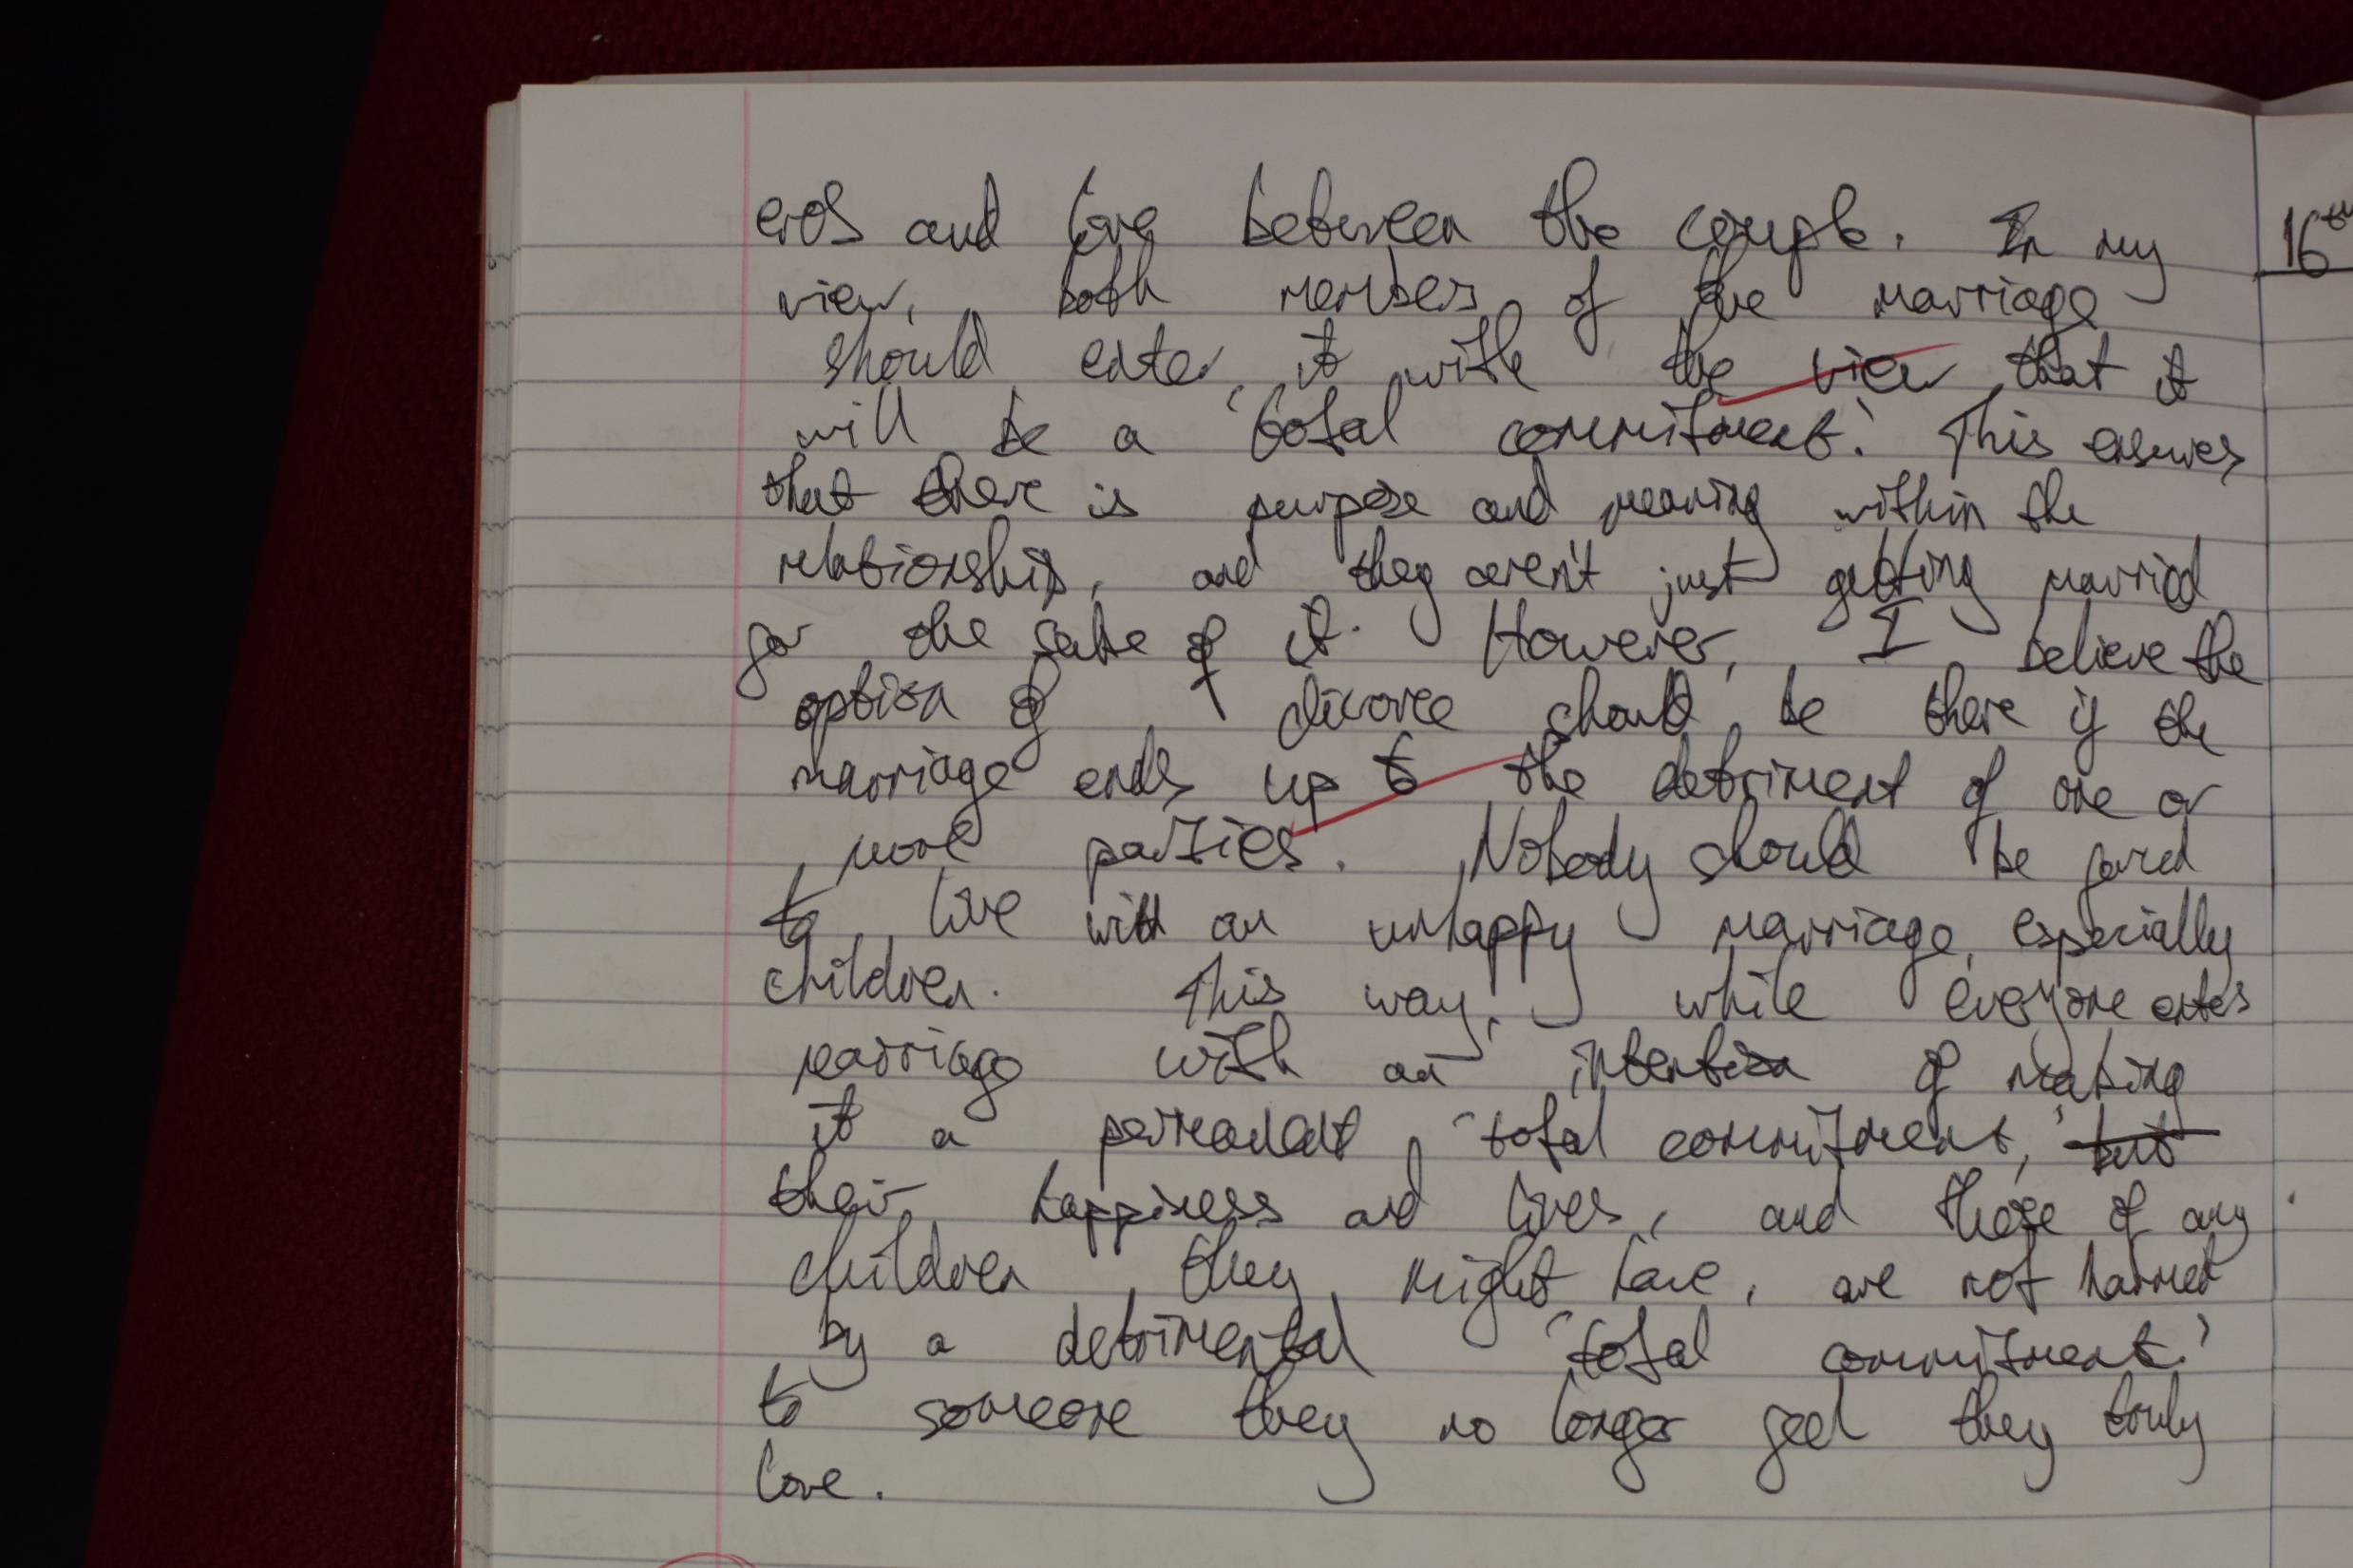 eros and love between the couple. In my
view, both members of the marriage
should enter it with the view that it
will be a 'total commitment.' This ensures
that there is purpose and meaning within the
relationship, and they aren't just getting married
for the sake of it. However, I believe the
option of divorce should be there if the
marriage ends up to the detriment of one or
more parties. Nobody should be forced
to live with an unhappy marriage, especially
children. This way, while everyone enters
marriage with an intention of making
it a permanent 'total commitment,' but
their happiness and lives, and those of any
children they might have, are not harmed
by a detrimental 'total commitment.'
to someone they no longer feel they truly
love.
16th